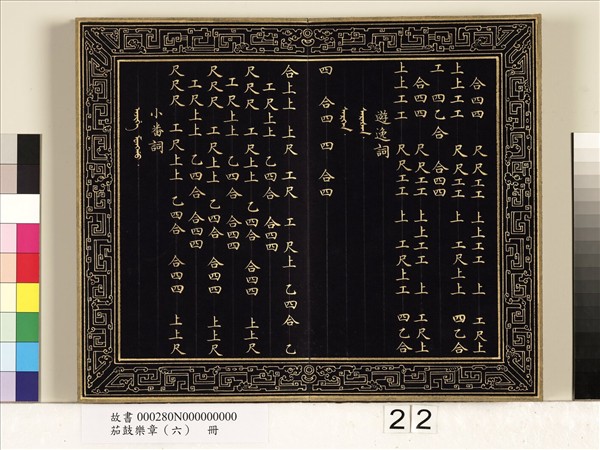 合四四 尺尺工工 上上工工 上 上 工尺上
上上工工 尺尺工工 上 工尺上 四乙合
工 四乙合 合四四
合四四 尺尺工工 上上工工 上 工尺上
上上工工 尺尺工工 上 工尺上工 四乙合
遊逸詞
四 合四 四 合四
合上上 上尺 工尺 工 尺上 乙四合 乙
工尺上上 乙四合 合四四
尺尺尺 工尺上上 乙四合 合四四 上上尺
工尺上上 乙四合 合四四
尺尺尺 工尺上上 乙四合 合四四 上上尺
工尺上上 乙四合 合四四
尺尺尺 工尺上上 乙四合 合四四 上上尺
小番詞
故書 000280N000000000
笳鼓樂章（六） 冊
22